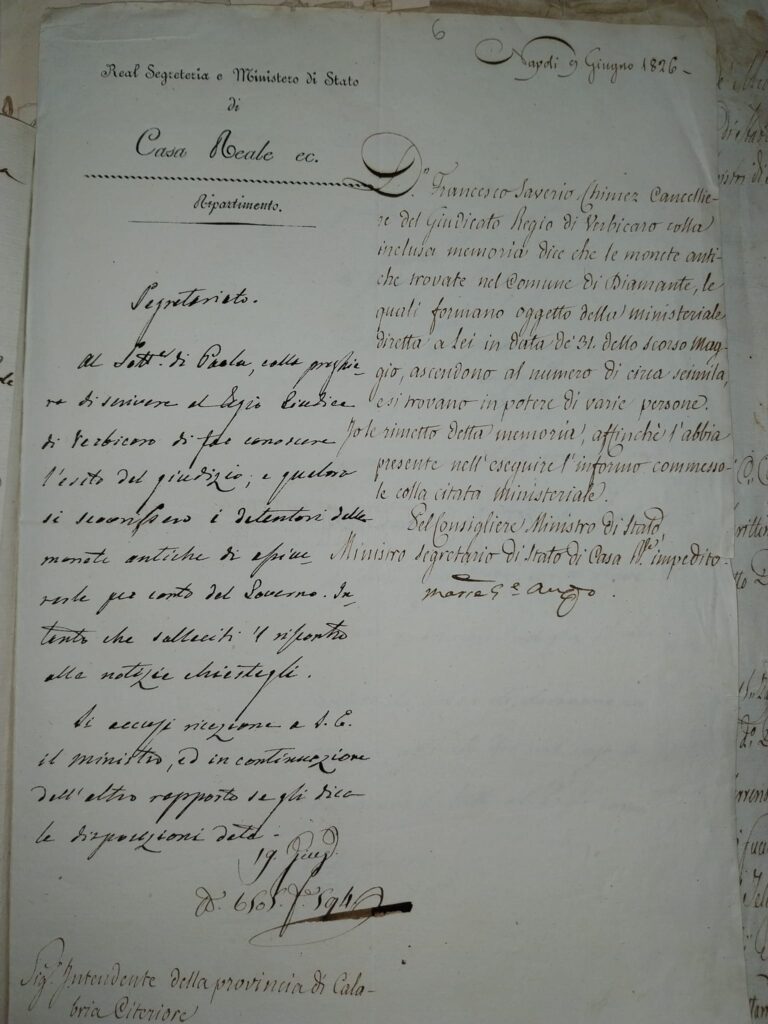 6
Napoli 9 Giugno 1826 -
Real Segreteria e Ministero di Stato
di
Casa Reale ec.
Ripartimento.
D.n Francesco Saverio Chimez Cancellie-
re del Giudicato Regio di Verbicaro colla
inclusa memoria dice che le monete anti-
che trovate nel Comune di Diamante, le
quali formano oggetto della ministeriale
diretta a Lei in data de' 31. dello scorso Mag-
gio, ascendono al numero di circa seimila,
e si trovano in potere di varie persone.
Io le rimetto detta memoria, affinchè l'abbia
presente nell'eseguire l'informo commesso-
le colla citata ministeriale.
Pel Consigliere Ministro di Stato
Ministro segretario di Stato di Casa R.le impedito
Segretariato.
Al Sott.e di Paola, colla preghie-
ra di scrivere al Regio Giudice
di Verbicaro di far conoscere
l'esito del giudizio; e qualora
si scovrissero i detentori delle
monete antiche di
per conto del Governo. In-
tanto che solleciti il riscontro
alle notizie chiestegli.
Si accusi ricezione a S. E.
il ministro, ed in continuazione
dell'altro rapporto se gli dica
le disposizioni date -
19 Giug.
Sig.r Intendente della provincia di Cala-
bria Citeriore